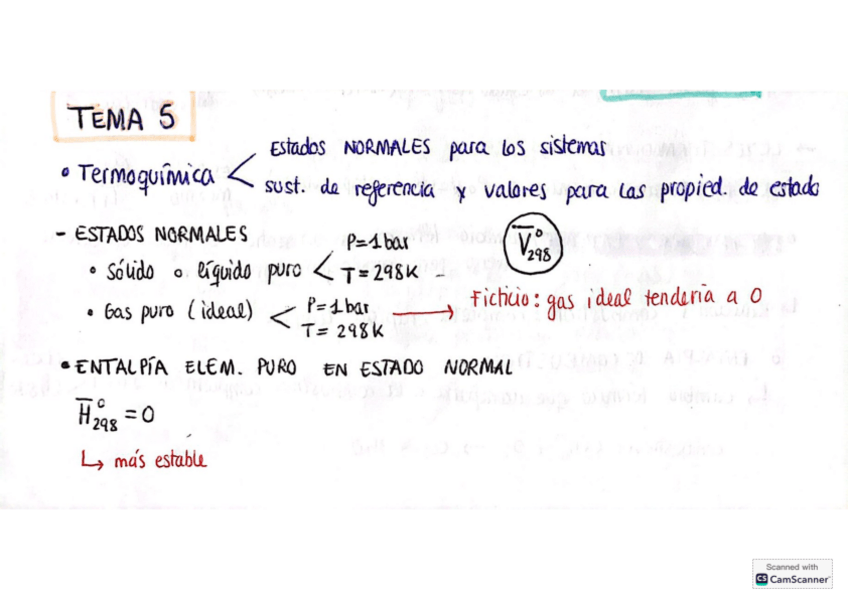 TEMA 5
Estados NORMALES para los sistemas
• Termoquímica <
sust. de referencia y valores para las propied. de estado
- ESTADOS NORMALES
• Sólido o líquido puro < P=1bar
T=298K -
V̅°298
• Gas puro (ideal) < P=1bar
T=298K
→ Ficticio: gas ideal tendería a 0
• ENTALPÍA ELEM. PURO EN ESTADO NORMAL
H̅°298 = 0
↳ más estable
Scanned with
CS CamScanner